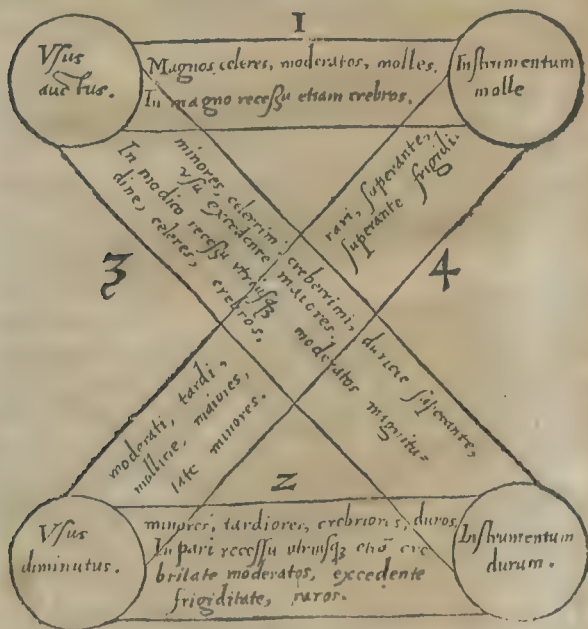 1
Vſus
auctus.
Magnos, celeres, moderatos, molles.
In magno receſſu etiam crebros.
Inſtrumentum
molle
minores, celerrimi, creberrimi, duricie ſuperante,
vſu excedente maiores.
In modico receſſu vtriuſqʒ moderatos magnitu-
dine, celeres, crebros.
rari, ſuperante,
ſuperante frigidi
3
4
moderati, tardi,
mollicie, maiores,
tate minores.
2
Vſus
diminutus.
minores, tardiores, crebriores, duros.
In pari receſſu vtriuſqʒ etiā cre
britate moderatos, excedente
frigiditate, raros.
Inſtrumentum
durum.